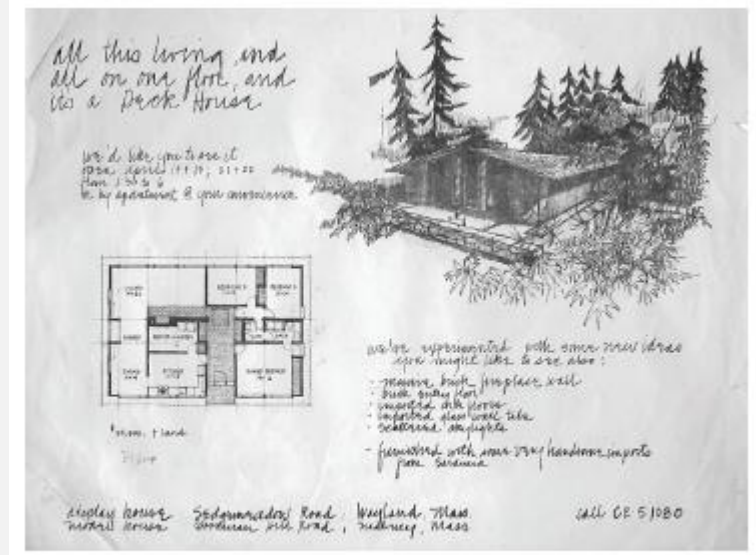 all this living and
all on one floor, and
its a Deck House
we'd like you to see it
open april
from 1:30 to 6
or by appointment @ your convenience
BEDROOM
KITCHEN
we've experimented with some new ideas
you might like to see also:
- massive brick fireplace wall
- brick entry floor
- imported floors
- imported glass wall
- scattered skylights
- furnished with some very handsome imports
from Sardinia
+ land
display house Sedgemeadow Road, Wayland, Mass.
model house Road, Sudbury, Mass
call CE 5 1080